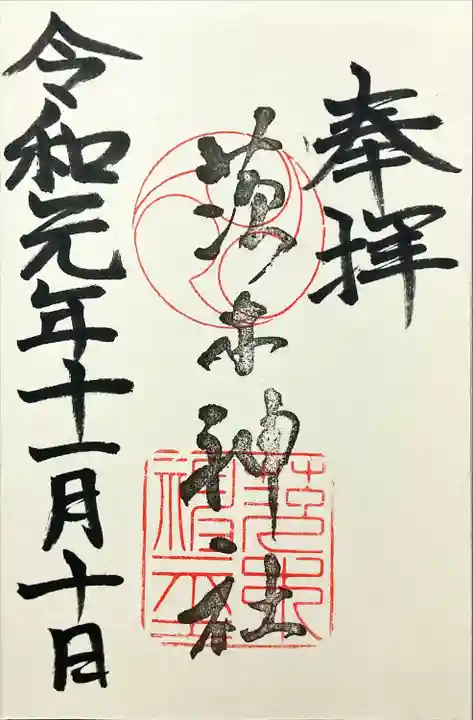 奉拝
茨木神社
令和元年十一月十日